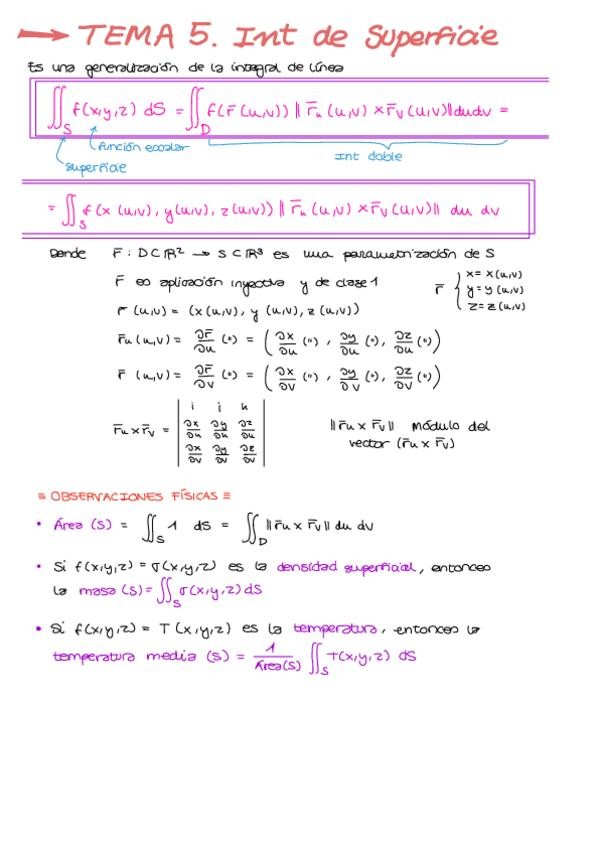 → TEMA 5. Int de Superficie
Es una generalización de la integral de línea
∬_S f(x,y,z) dS = ∬_D f(r̄(u,v)) ‖ r̄u (u,v) × r̄v(u,v)‖ dudv =
función escalar
Int doble
superficie
= ∬_S f(x (u,v), y(u,v), z(u,v)) ‖ r̄u (u,v) × r̄v(u,v)‖ du dv
Donde r̄ : D⊂ℝ² → S⊂ℝ³ es una parametrización de S
r̄ es aplicación inyectiva y de clase 1
r̄ { x= x(u,v) y=y(u,v) z=z(u,v)
r (u,v) = (x(u,v), y (u,v), z(u,v))
r̄u(u,v) = ∂r̄/∂u (") = ( ∂x/∂u (") , ∂y/∂u ("), ∂z/∂u (") )
r̄ (u,v) = ∂r̄/∂v (") = ( ∂x/∂v (") , ∂y/∂v ("), ∂z/∂v (") )
r̄u × r̄v = | i j k ; ∂x/∂u ∂y/∂u ∂z/∂u ; ∂x/∂v ∂y/∂v ∂z/∂v |
‖r̄u × r̄v‖ módulo del
vector (r̄u × r̄v)
≡ OBSERVACIONES FÍSICAS ≡
• Área (S) = ∬_S 1 dS = ∬_D ‖r̄u × r̄v‖ du dv
• Si f(x,y,z) = σ(x,y,z) es la densidad superficial, entonces
la masa (S) = ∬_S σ(x,y,z) dS
• Si f(x,y,z) = T (x,y,z) es la temperatura, entonces la
temperatura media (S) = 1/Área(S) ∬_S T(x,y,z) dS